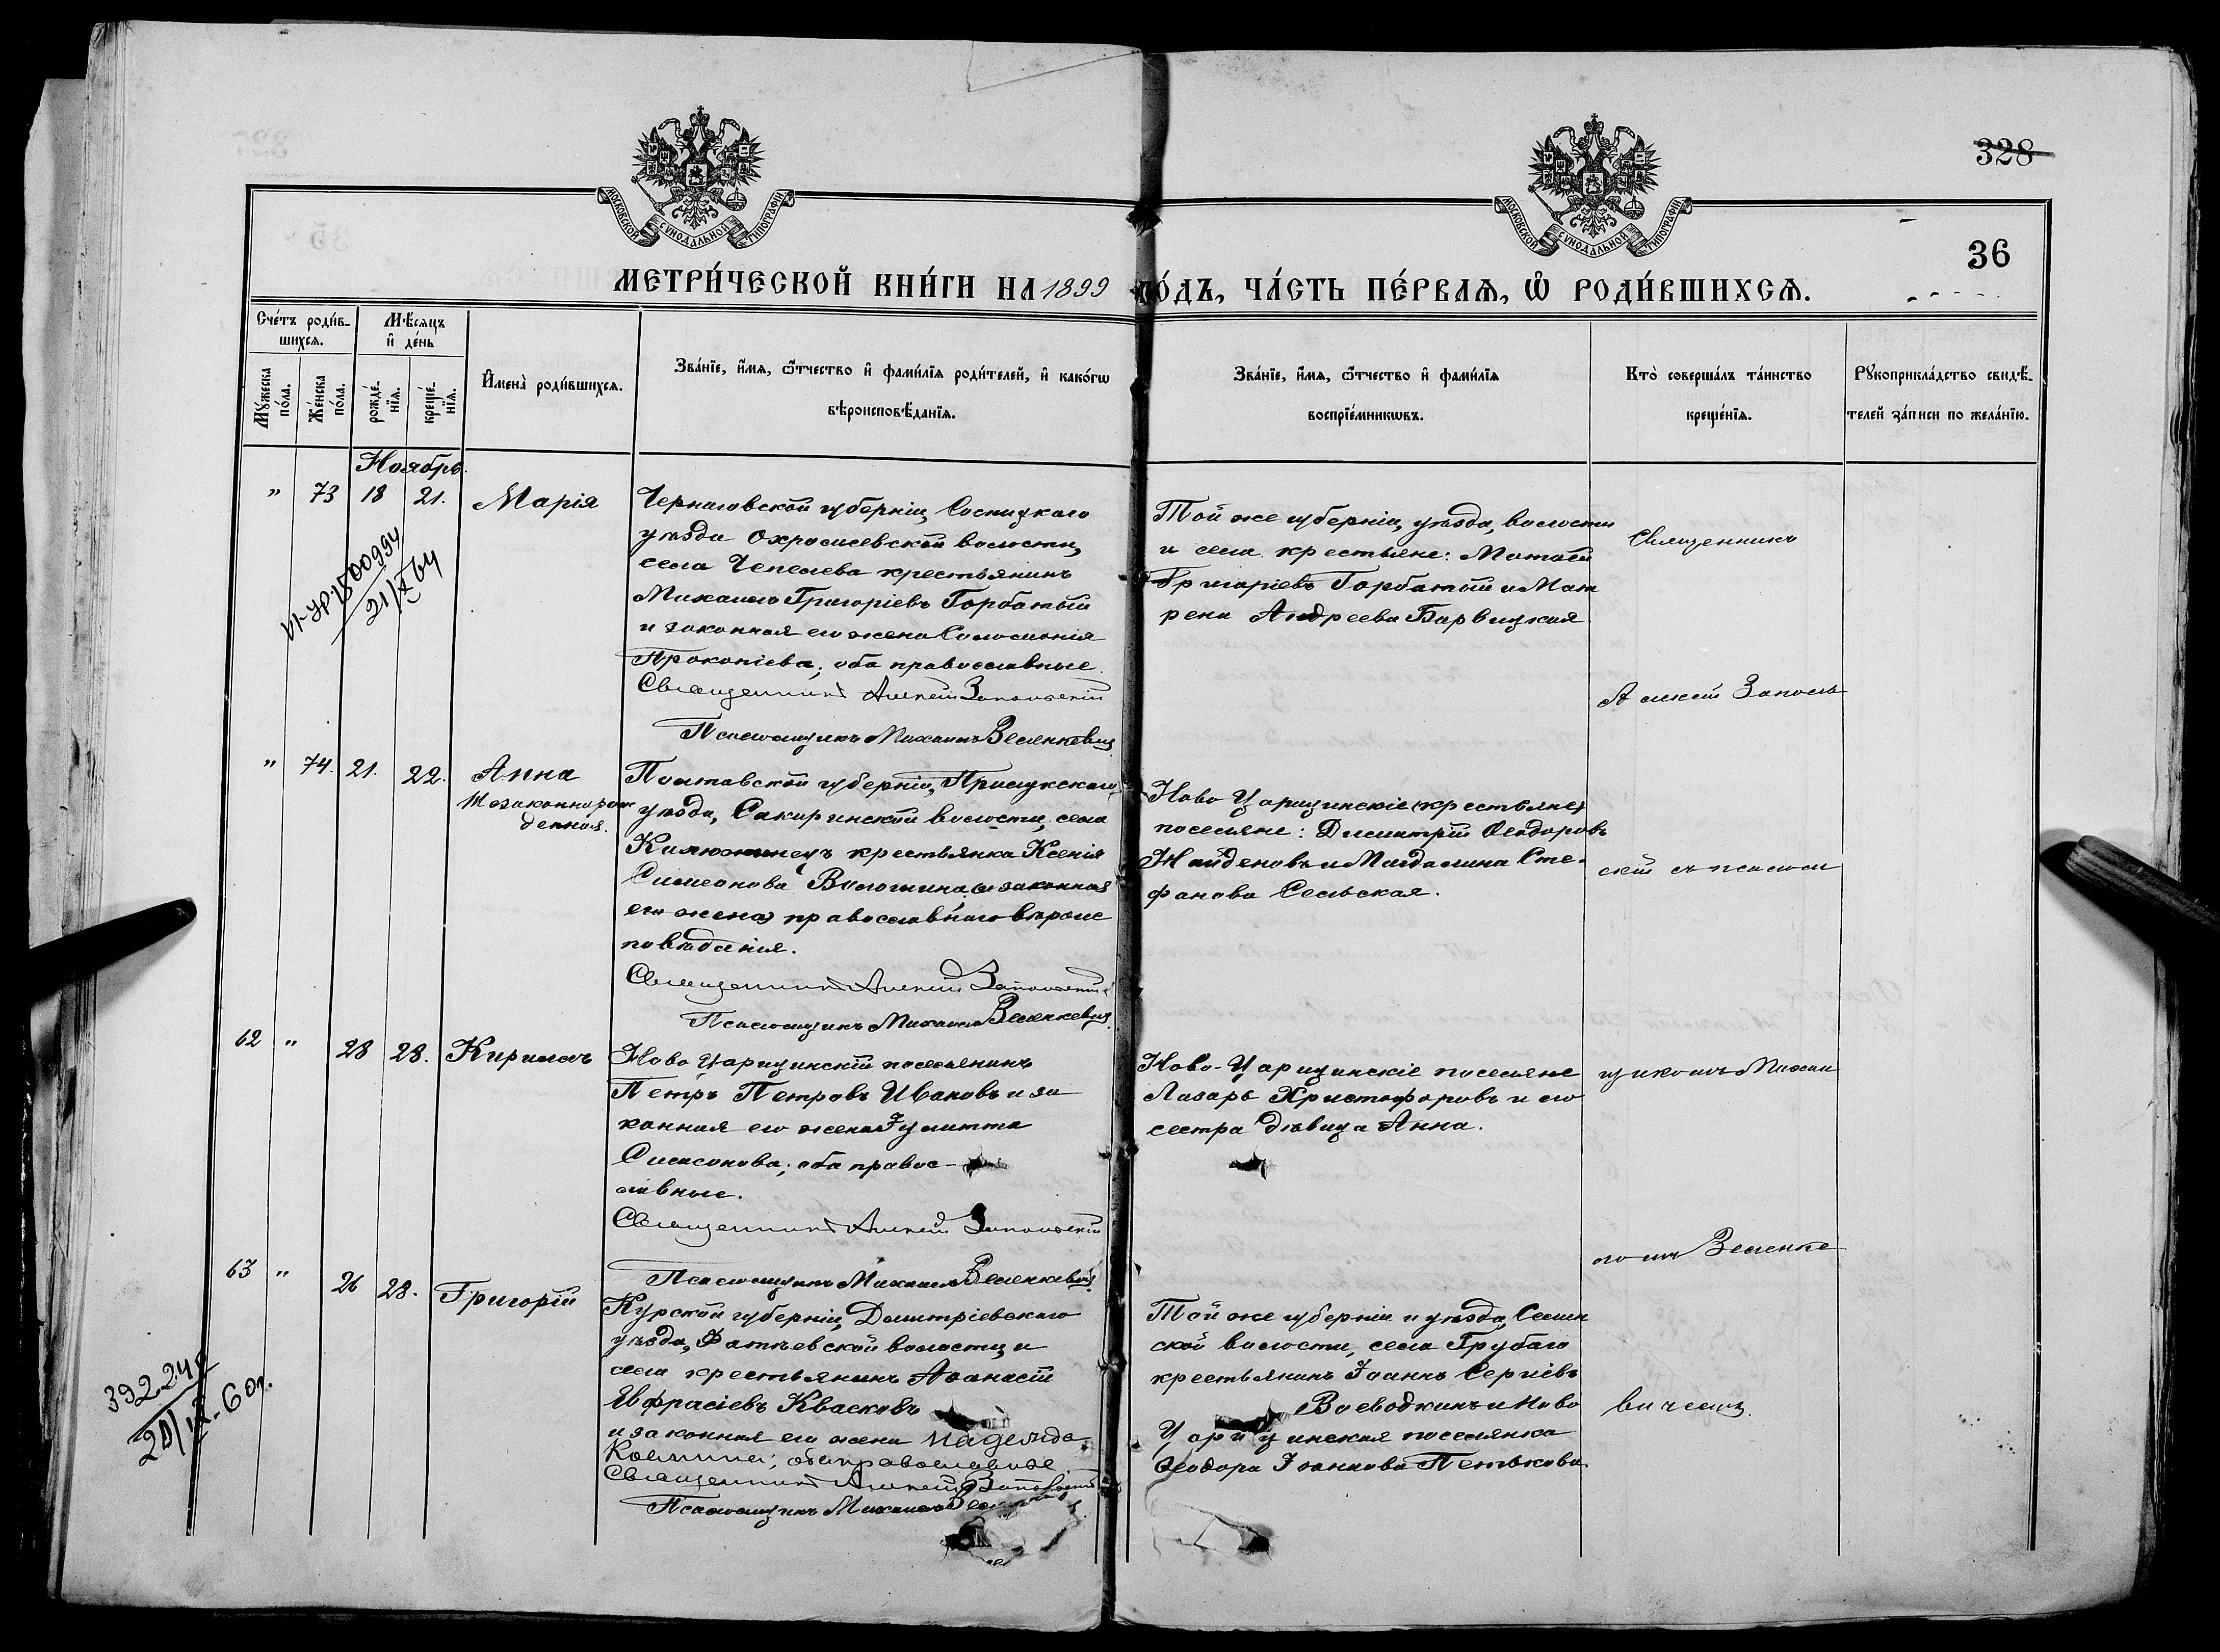 328
36
МОСКОВСКОЙ СѴНОДАЛЬНОЙ ТИПОГРАФІИ
МОСКОВСКОЙ СѴНОДАЛЬНОЙ ТИПОГРАФІИ
МЕТРИ́ЧЕСКОЙ КНИ́ГИ НА 1899 ГО́ДЪ, ЧА́СТЬ ПЕ́РВАѦ, Ѽ РОДИ́ВШИХСѦ.
Сче́тъ роди́в-
шихсѧ.
Мѣ́сѧцъ
и҆ де́нь
Мꙋ́жеска
по́ла.
Же́нска
по́ла.
рожде́-
нїѧ.
креще́-
нїѧ.
И҆мена̀ роди́вшихсѧ.
Зва́нїе, и҆́мѧ, ѻ҆́тчество и҆ фами́лїѧ роди́телей, и҆ како́гѡ
вѣроисповѣ́данїѧ.
Зва́нїе, и҆́мѧ, ѻ҆́тчество и҆ фами́лїѧ
воспрїе́мникѡвъ.
Кто̀ соверша́лъ та́инство
креще́нїѧ.
Рꙋкоприкла́дство свидѣ́-
телей за́писи по жела́нїю.
Ноябрь.
" 73 18 21. Марія
Черниговской губерніи, Сосницкаго
уѣзда Охромеевской волости,
села Чепелева крестьянинъ
Михаилъ Григоріевъ Горбатый
и законная его жена Соломонія
Прокопіева; оба православные.
Священникъ Алексій Запольскій
Псаломщикъ Михаилъ Зеленкевичъ
Той же губерніи, уѣзда, волости
и села крестьяне: Матѳей
Григоріевъ Горбатый и Мат
рена Андреева Барвицкая
Священникъ
Алексій Заполь
21/X 64
" 74. 21. 22. Анна
Незаконнорож
денная.
Полтавской губерніи, Прилукскаго
уѣзда, Сакиринской волости, села
крестьянка Ксенія
Симеонова Волошина (и законная
его жена) православнаго вѣроис
повѣданія.
Священникъ Алексій Запольскій
Псаломщикъ Михаилъ Зеленкевичъ
Ново Царицинскіе (крестьяне)
поселяне: Димитрій Ѳеодоровъ
Найденовъ и Магдалина Сте-
фанова Сельская.
скій съ псалом
62 " 28 28. Кириллъ
Ново Царицинскій поселянинъ
Петръ Петровъ Ивановъ и за
конная его жена Іулитта
Симеонова; оба правос-
лавные.
Священникъ Алексій Запольскій
Псаломщикъ Михаилъ Зеленкевичъ
Ново-Царицинскіе поселяне
Лазарь Христофоровъ и его
сестра дѣвица Анна.
щикомъ Михаи
ломъ Зеленке
63 " 26 28. Григорій
Курской губерніи, Димитріевскаго
уѣзда, Фатѣевской волости, и
села крестьянинъ Аѳанасій
Евфрасіевъ Квасковъ
и законная его жена Надежда
оба православные
Священникъ Алексій Запольскій
Псаломщикъ Михаилъ
Той же губерніи и уѣзда,
ской волости, села Грубаго
крестьянинъ Іоаннъ Сергіевъ
Воеводкинъ и Ново
Царицинская поселянка
Ѳеодора Іоаннова Петькова.
вичемъ.